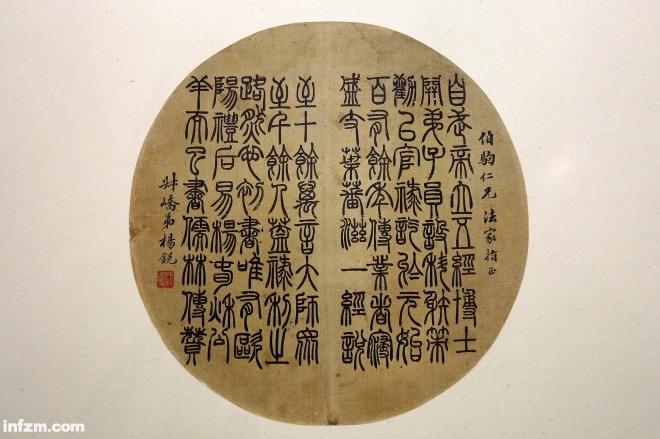 伯駒仁兄 法家指正
自武帝立五經博士
開弟子員設科射策
勸以官祿訖於元始
百有餘年傳業者寖
盛支葉蕃滋一經說
至十餘萬言大師眾
至千餘人蓋祿利之
路然也初書唯有歐
陽禮后易楊春秋公
羊而已書儒林傳贊
叔嶠弟楊銳
infzm.com